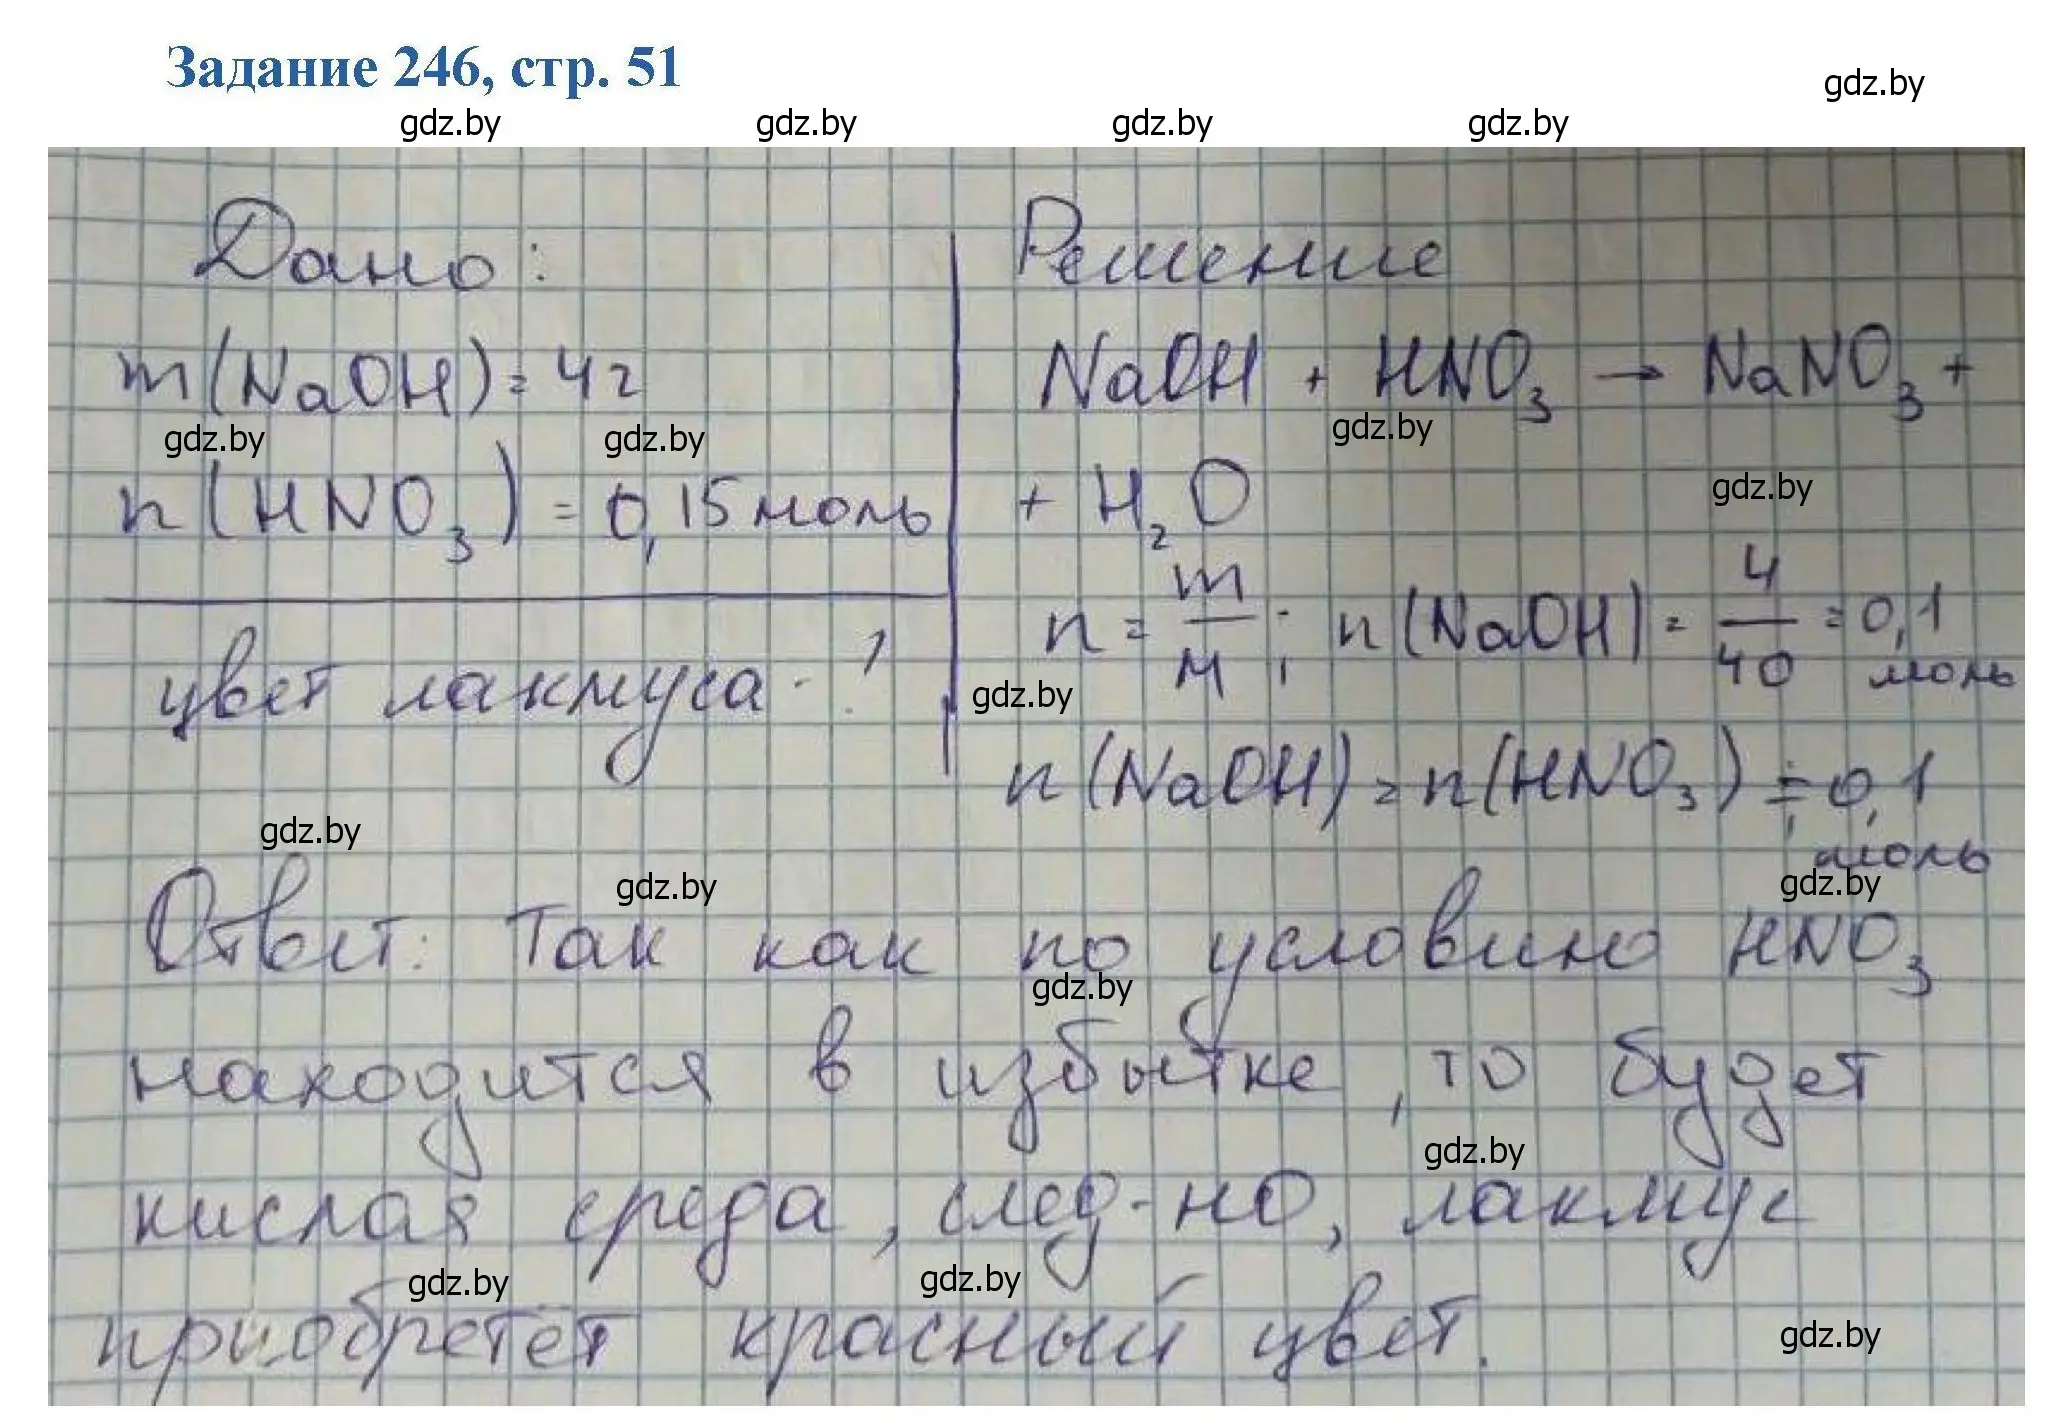 Задание 246, стр. 51
gdz.by
gdz.by gdz.by gdz.by gdz.by
Дано:
m(NaOH) = 4г
gdz.by gdz.by
n(HNO₃) = 0,15 моль
цвет лакмуса - ?
Решение
NaOH + HNO₃ → NaNO₃ +
gdz.by
gdz.by
+ H₂O
n = m/M; n(NaOH) = 4/40 = 0,1 моль
gdz.by
n(NaOH) = n(HNO₃) = 0,1 моль
gdz.by
gdz.by
gdz.by
Ответ: Так как по условию HNO₃
gdz.by
находится в избытке, то будет
gdz.by
кислая среда, след-но, лакмус
gdz.by gdz.by
приобретёт красный цвет.
gdz.by